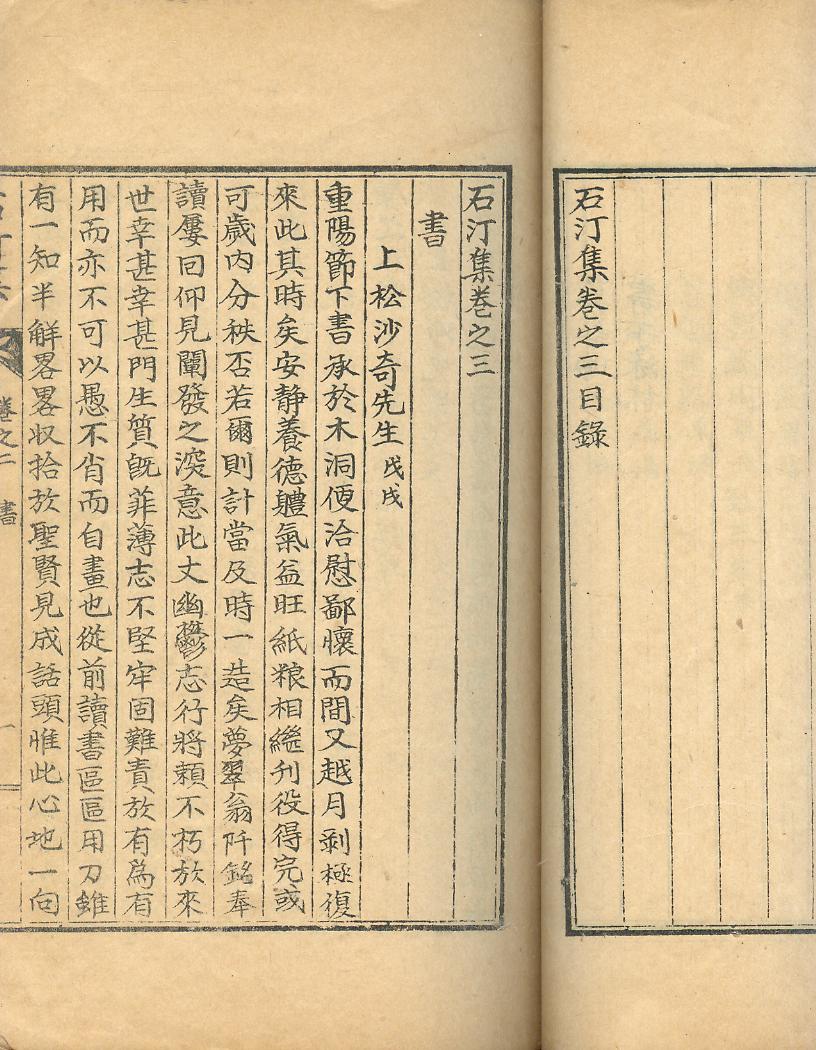 石汀集卷之三目錄
石汀集卷之三
書
上松沙奇先生 戊戌
重陽節下書承於木洞便洽慰鄙懷而間又越月剥極復
來此其時矣安靜養德軆氣益旺紙粮相繼刋役得完或
可歲內分秩否若爾則計當及時一造矣夢翠翁阡銘奉
讀屢回仰見闡發之深意此丈幽鬱志行將賴不朽於來
世幸甚幸甚門生質旣菲薄志不堅牢固難責於有爲有
用而亦不可以愚不肖而自畫也從前讀書區區用力雖
有一知半解畧畧収拾於聖賢見成話頭惟此心地一向
卷之二 書 一